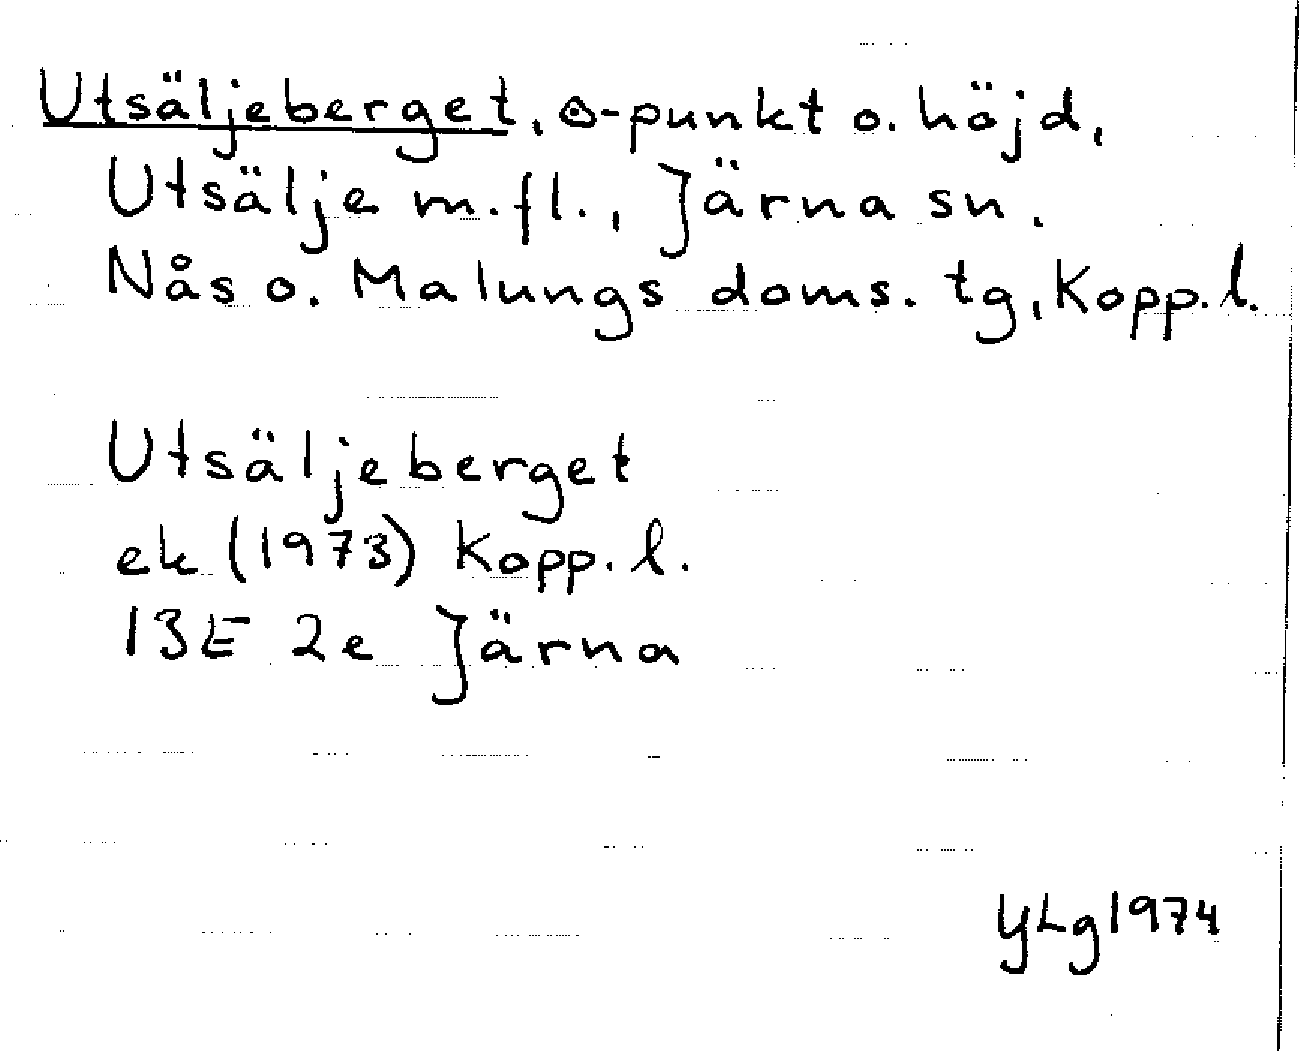 Utsäljeberget, ⊙-punkt o. höjd,
Utsälje m.fl., Järna sn.
Nås o. Malungs doms. tg, Kopp. l.
Utsäljeberget
ek (1973) Kopp. l.
13E 2e Järna
YLg 1974